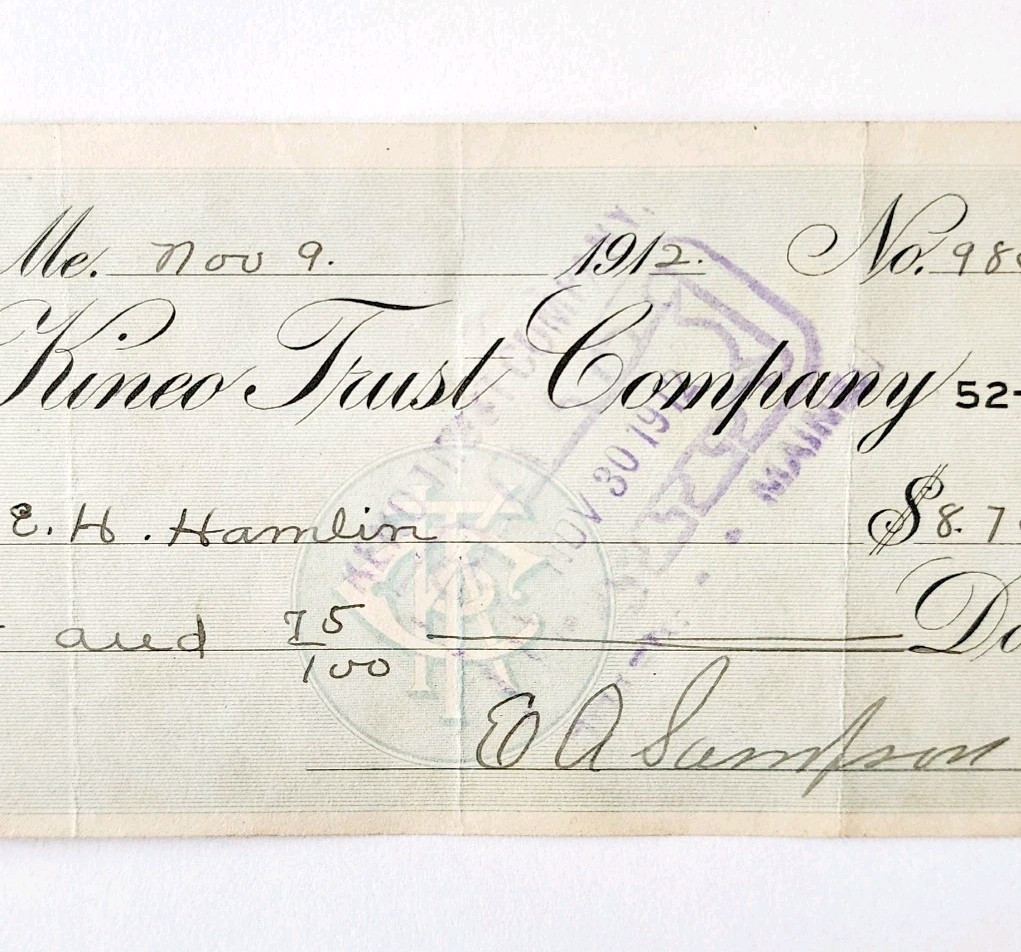 Me. Nov 9. 1912. No. 98
Kineo Trust Company 52-
E. H. Hamlin $8.7
and 75/100 Do
E A Sampson
COMPANY,
NOV 30 191
MAINE